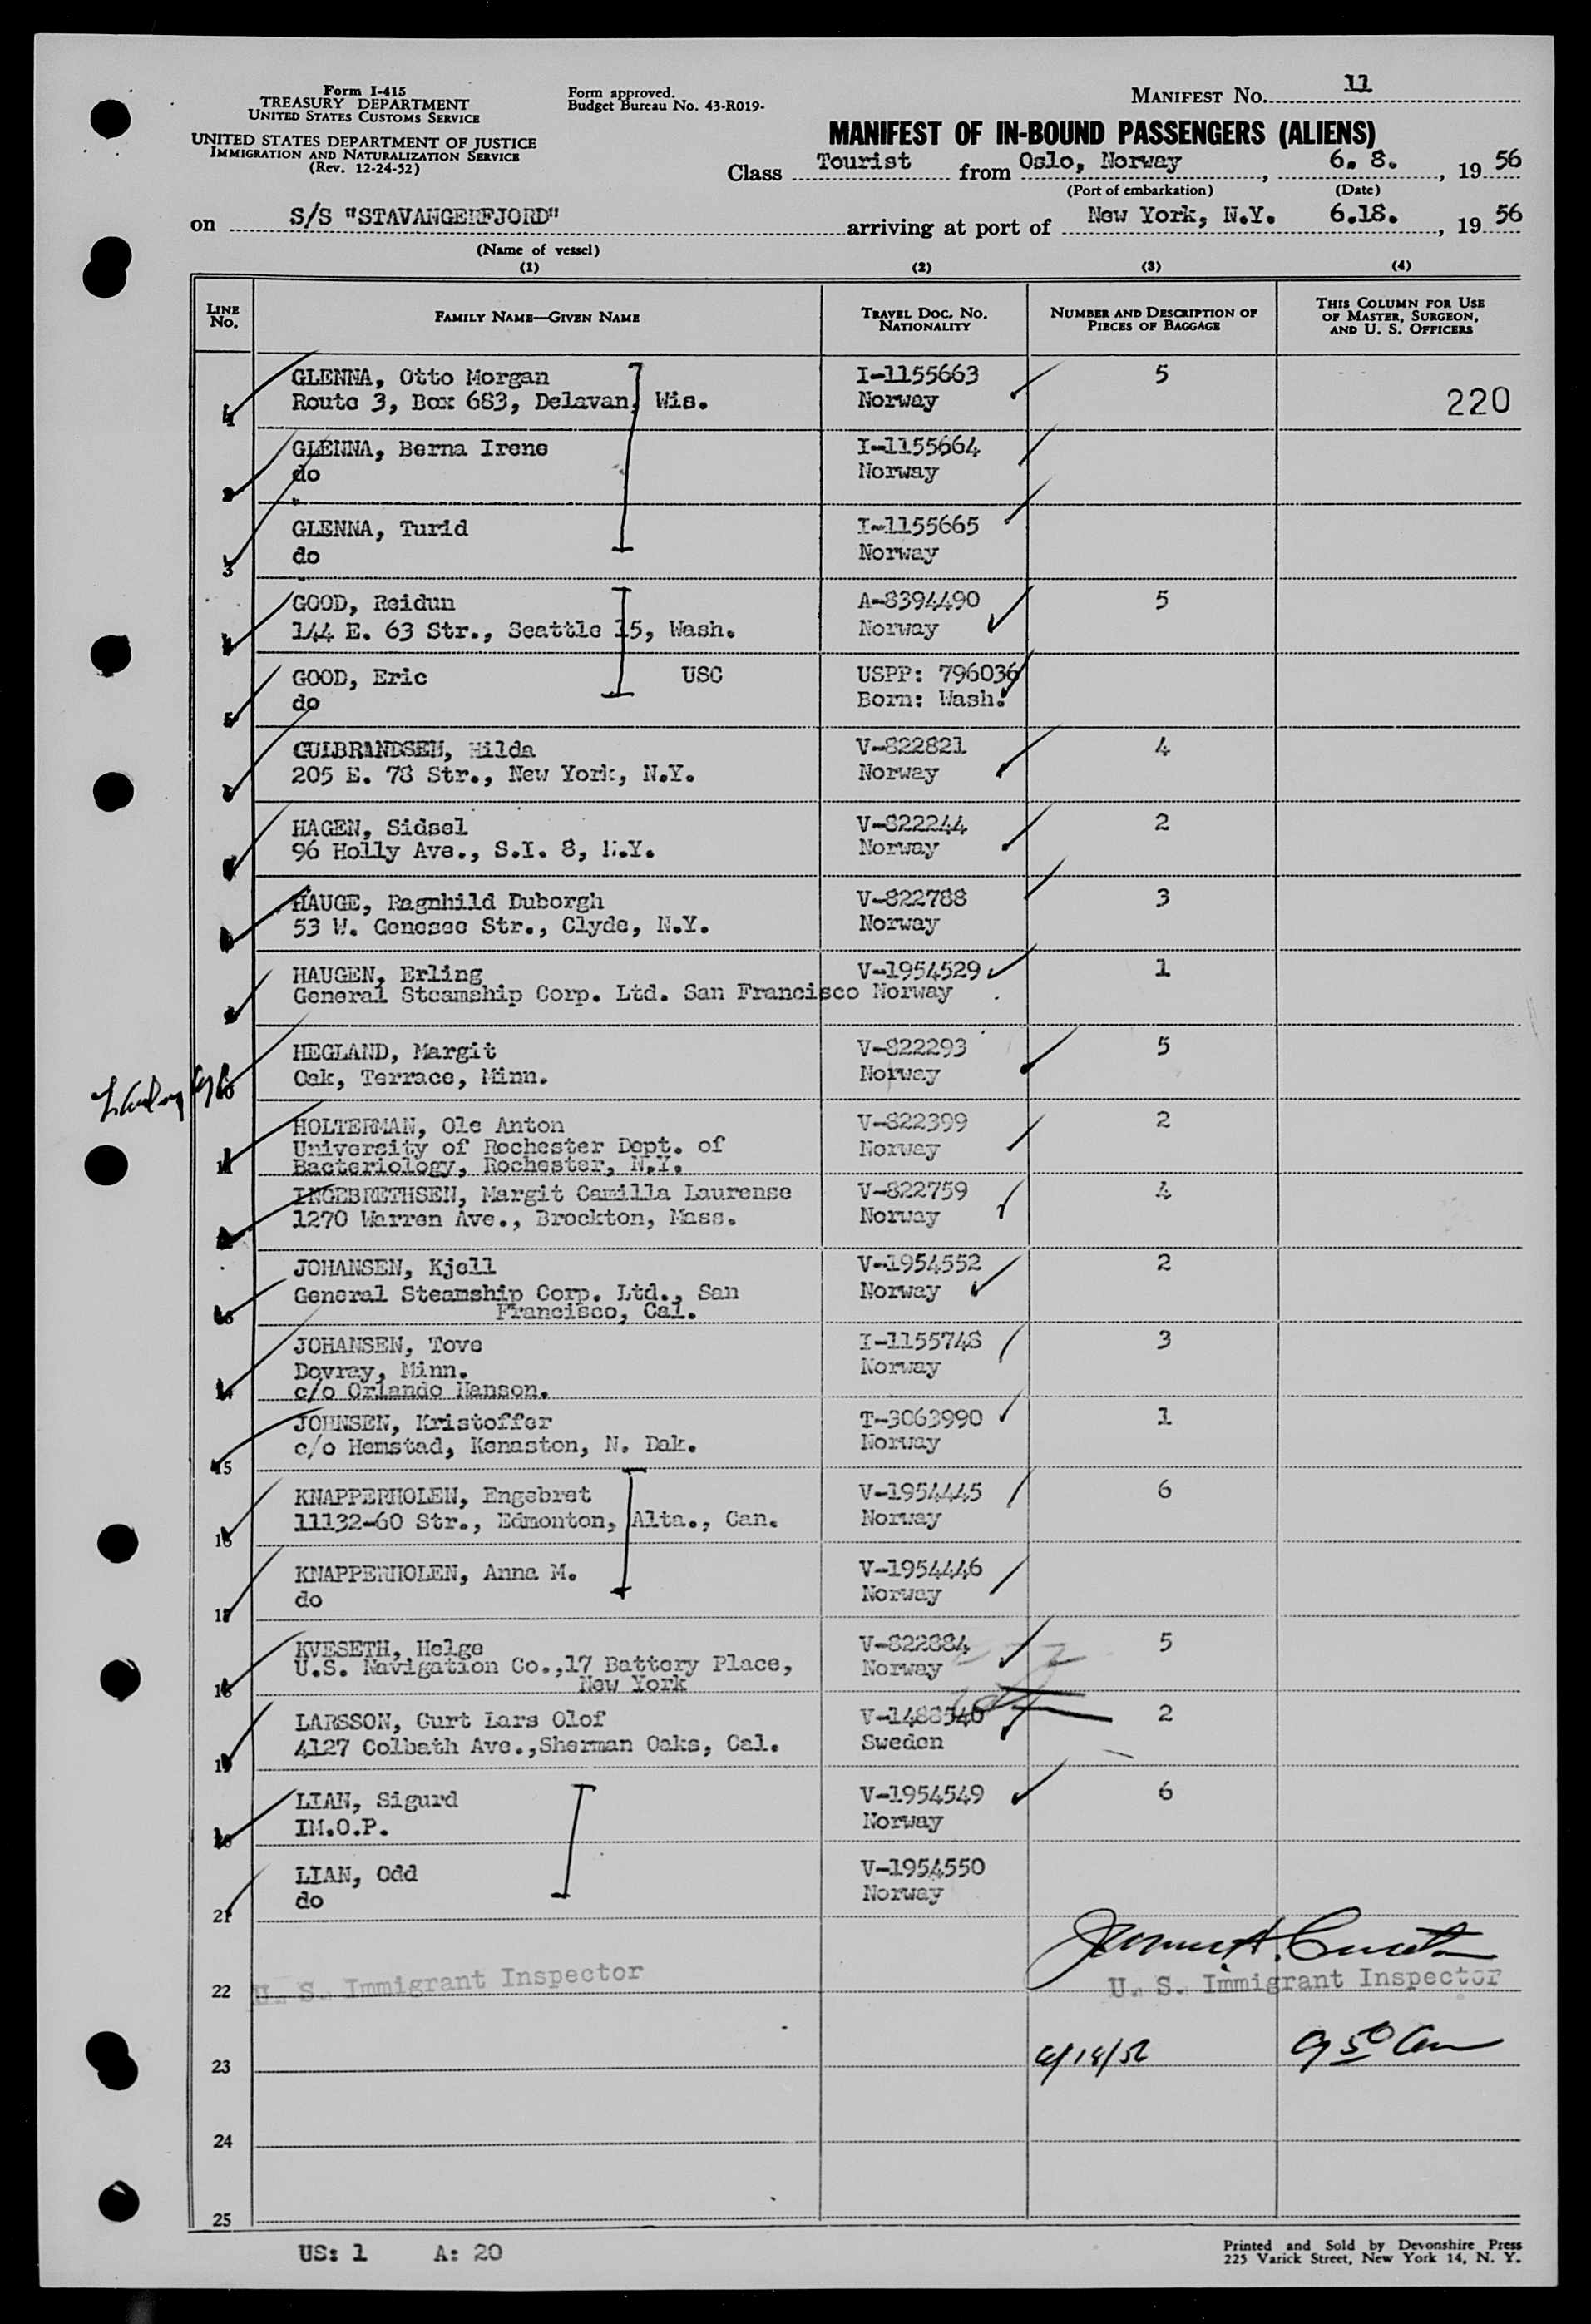 Form I-415
TREASURY DEPARTMENT
UNITED STATES CUSTOMS SERVICE
UNITED STATES DEPARTMENT OF JUSTICE
IMMIGRATION AND NATURALIZATION SERVICE
(Rev. 12-24-52)
Form approved.
Budget Bureau No. 43-R019-
MANIFEST No. 11
MANIFEST OF IN-BOUND PASSENGERS (ALIENS)
Class Tourist from Oslo, Norway, 6. 8., 19 56
(Port of embarkation) (Date)
on S/S "STAVANGERFJORD" arriving at port of New York, N.Y. 6.18., 19 56
(Name of vessel)
(1) (2) (3) (4)
LINE No. FAMILY NAME—GIVEN NAME TRAVEL DOC. NO. NATIONALITY NUMBER AND DESCRIPTION OF PIECES OF BAGGAGE THIS COLUMN FOR USE OF MASTER, SURGEON, AND U. S. OFFICERS
1 GLENNA, Otto Morgan I-1155663 5
Route 3, Box 683, Delavan, Wis. Norway 220
2 GLENNA, Berna Irene I-1155664
do Norway
3 GLENNA, Turid I-1155665
do Norway
4 GOOD, Reidun A-8394490 5
144 E. 63 Str., Seattle 15, Wash. Norway
5 GOOD, Eric USC USPP: 796036
do Born: Wash.
6 GULBRANDSEN, Hilda V-822821 4
205 E. 78 Str., New York, N.Y. Norway
7 HAGEN, Sidsel V-822244 2
96 Holly Ave., S.I. 8, N.Y. Norway
8 HAUGE, Ragnhild Duborgh V-822788 3
53 W. Genesee Str., Clyde, N.Y. Norway
9 HAUGEN, Erling V-1954529 1
General Steamship Corp. Ltd. San Francisco Norway
10 HEGLAND, Margit V-822293 5
Oak, Terrace, Minn. Norway
11 HOLTERMAN, Ole Anton V-822399 2
University of Rochester Dept. of Norway
Bacteriology, Rochester, N.Y.
12 INGEBRETHSEN, Margit Camilla Laurense V-822759 4
1270 Warren Ave., Brockton, Mass. Norway
13 JOHANSEN, Kjell V-1954552 2
General Steamship Corp. Ltd., San Norway
Francisco, Cal.
14 JOHANSEN, Tove I-1155748 3
Dovray, Minn. Norway
c/o Orlando Hanson.
15 JOHNSEN, Kristoffer T-3063990 1
c/o Hemstad, Kenaston, N. Dak. Norway
16 KNAPPERHOLEN, Engebret V-1954445 6
11132-60 Str., Edmonton, Alta., Can. Norway
17 KNAPPERHOLEN, Anna M. V-1954446
do Norway
18 KVESETH, Helge V-822884 5
U.S. Navigation Co.,17 Battery Place, Norway
New York
19 LARSSON, Curt Lars Olof V-1488540 2
4127 Colbath Ave.,Sherman Oaks, Cal. Sweden
20 LIAN, Sigurd V-1954549 6
IM.O.P. Norway
21 LIAN, Odd V-1954550
do Norway
22 U. S. Immigrant Inspector U. S. Immigrant Inspector
23 6/18/56 9 50 am
24
25
US: 1 A: 20
Printed and Sold by Devonshire Press
225 Varick Street, New York 14, N. Y.